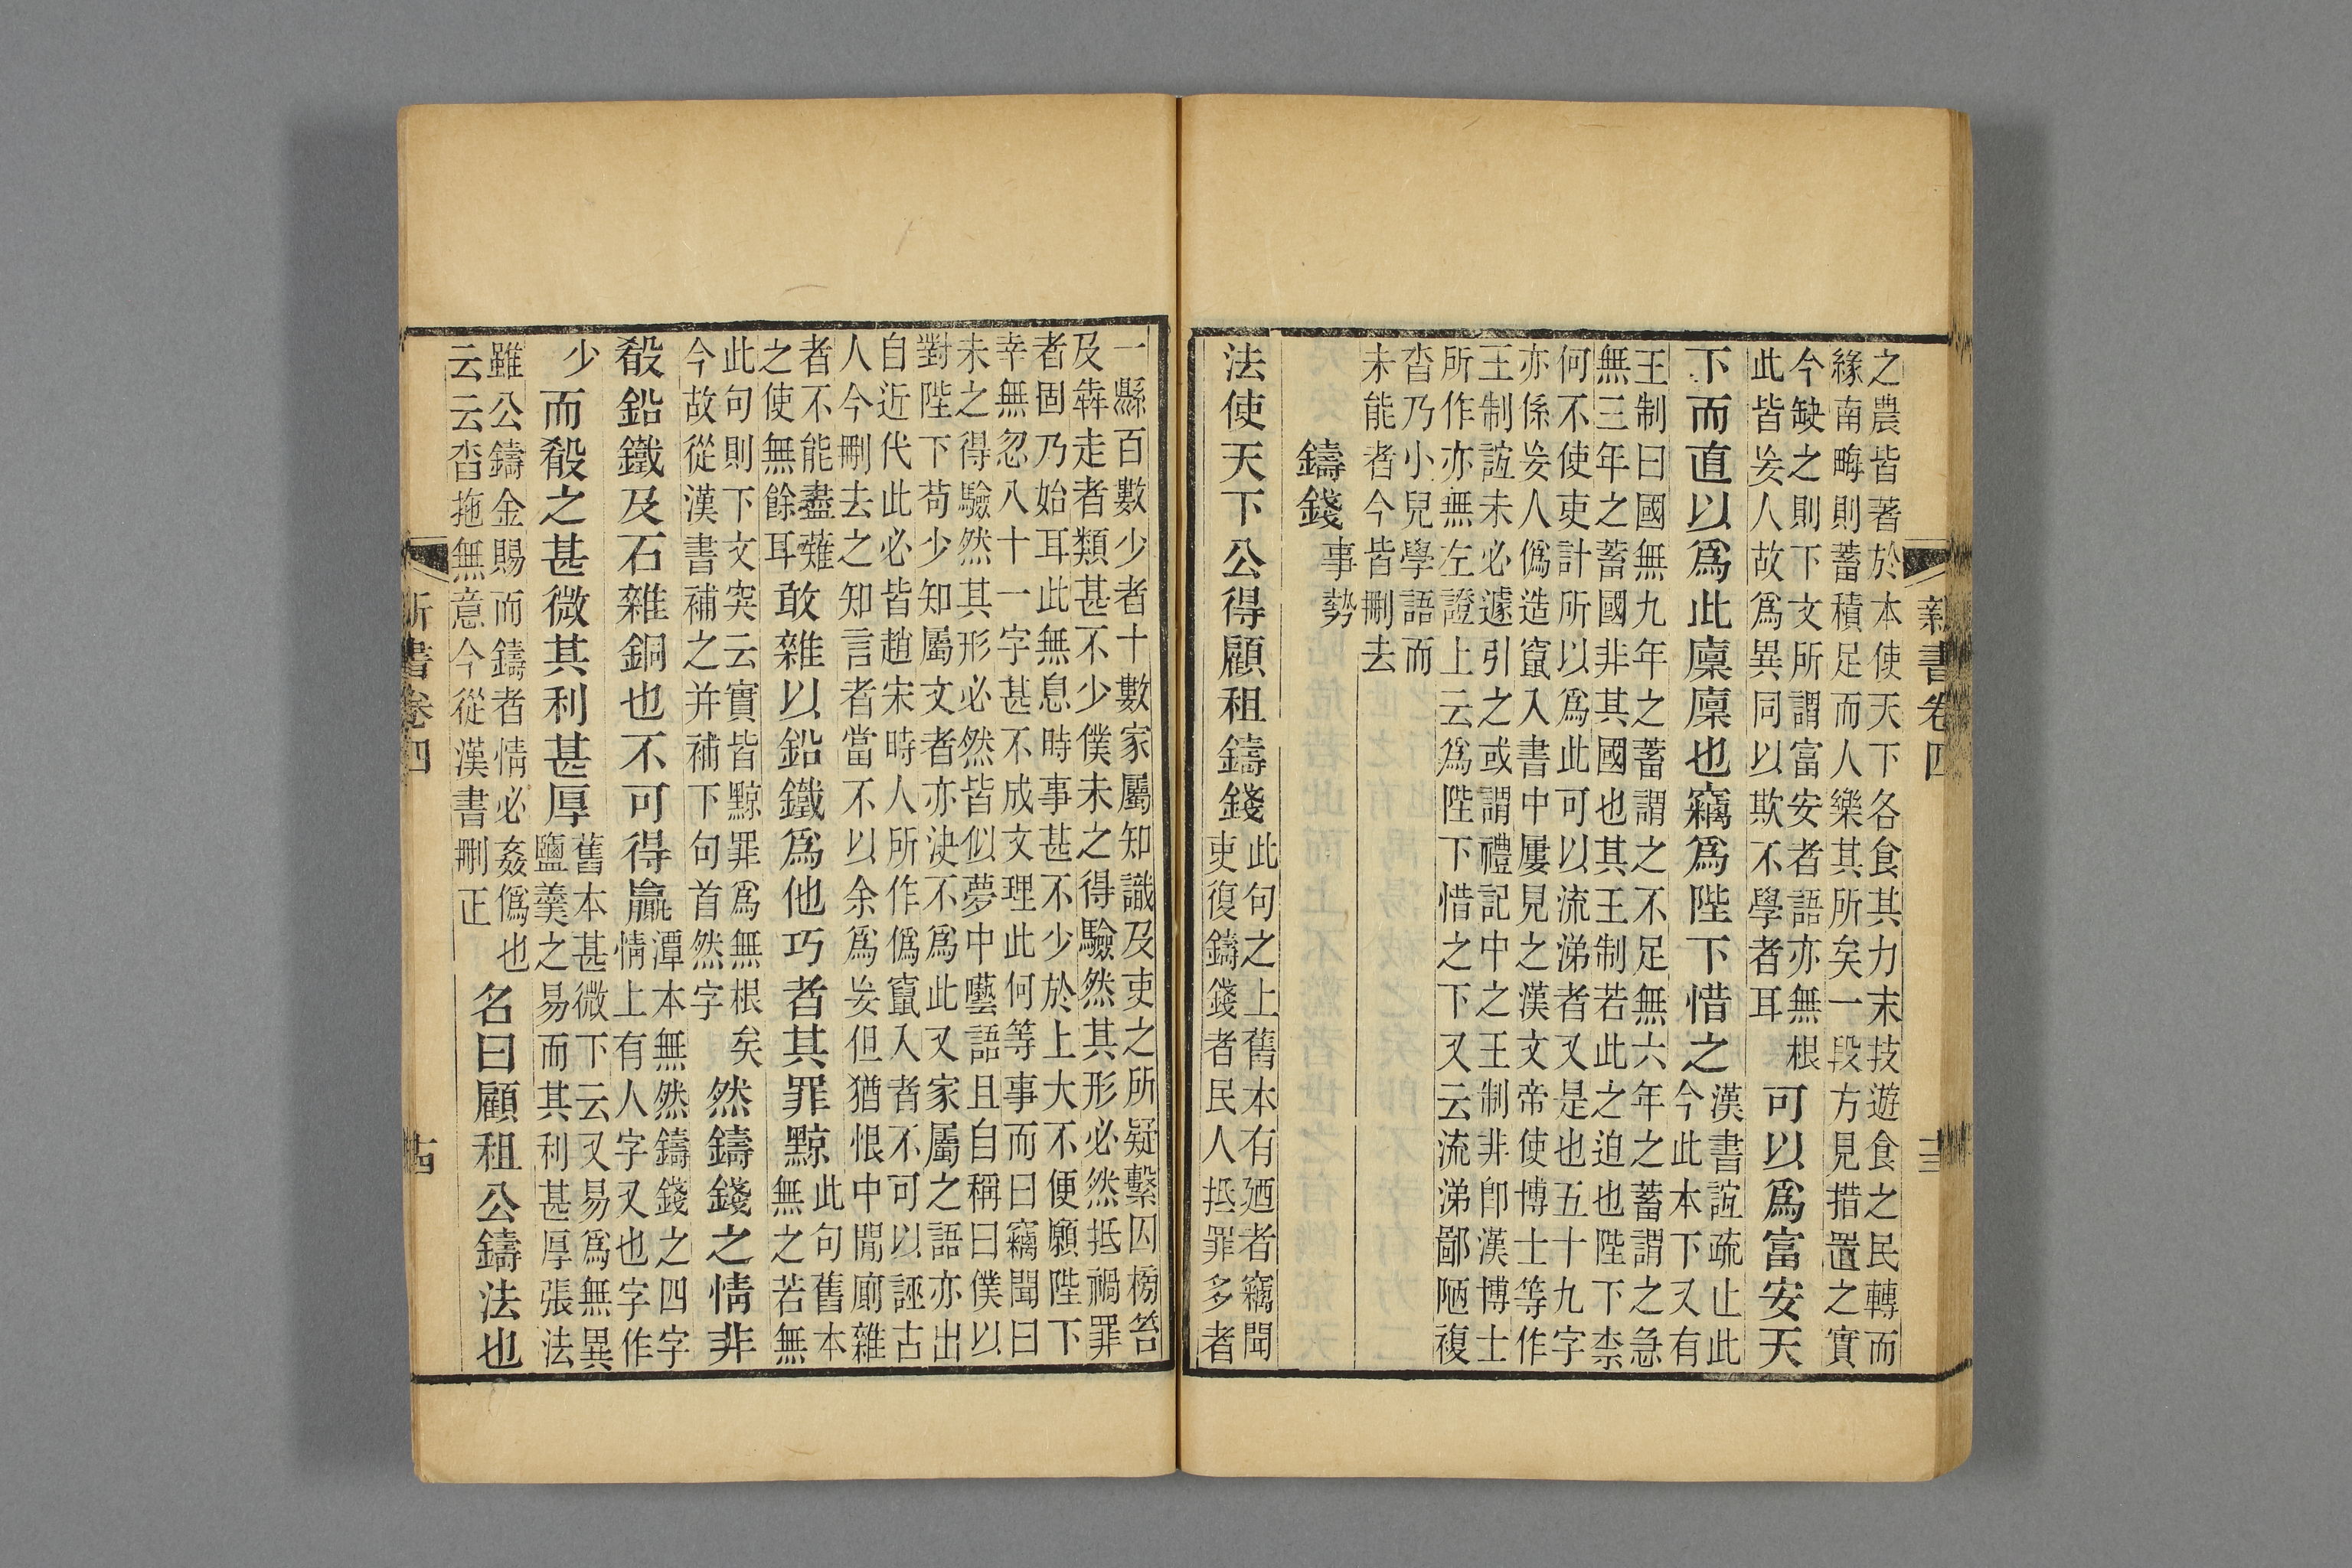 之農皆著於本使天下各食其力末技遊食之民轉而
緣南畮則蓄積足而人樂其所矣一段方見措置之實
今缺之則下文所謂富安者語亦無根
此皆妄人故爲異同以欺不學者耳
可以爲富安天
下而直以爲此廩廩也竊爲陛下惜之
漢書誼疏止此
今此本下又有
王制曰國無九年之蓄謂之不足無六年之蓄謂之急
無三年之蓄國非其國也其王制若此之迫也陛下柰
何不使吏計所以爲此可以流涕者又是也五十九字
亦係妄人僞造竄入書中屢見之漢文帝使博士等作
王制誼未必遽引之或謂禮記中之王制非卽漢博士
所作亦無左證上云爲陛下惜之下又云流涕鄙陋複
沓乃小兒學語而
未能者今皆刪去
鑄錢
事勢
法使天下公得顧租鑄錢
此句之上舊本有廼者竊聞
吏復鑄錢者民人抵罪多者
新書卷四
十三
一縣百數少者十數家屬知識及吏之所疑繫囚榜笞
及犇走者類甚不少僕未之得驗然其形必然抵禍罪
者固乃始耳此無息時事甚不少於上大不便願陛下
幸無忽八十一字甚不成文理此何等事而曰竊聞曰
未之得驗然其形必然皆似夢中囈語且自稱曰僕以
對陛下苟少知屬文者亦決不爲此又家屬之語亦出
自近代此必皆趙宋時人所作僞竄入者不可以誣古
人今刪去之知言者當不以余爲妄但猶恨中閒廁雜
者不能盡薙
之使無餘耳
敢雜以鉛鐵爲他巧者其罪黥
此句舊本
無之若無
此句則下文突云實皆黥罪爲無根矣
今故從漢書補之并補下句首然字
然鑄錢之情非
殽鉛鐵及石雜銅也不可得贏
潭本無然鑄錢之四字
情上有人字又也字作
少
而殽之甚微其利甚厚
舊本甚微下云又易爲無異
鹽羹之易而其利甚厚張法
雖公鑄金賜而鑄者情必姦僞也
云云沓拖無意今從漢書刪正
名曰顧租公鑄法也
新書卷四